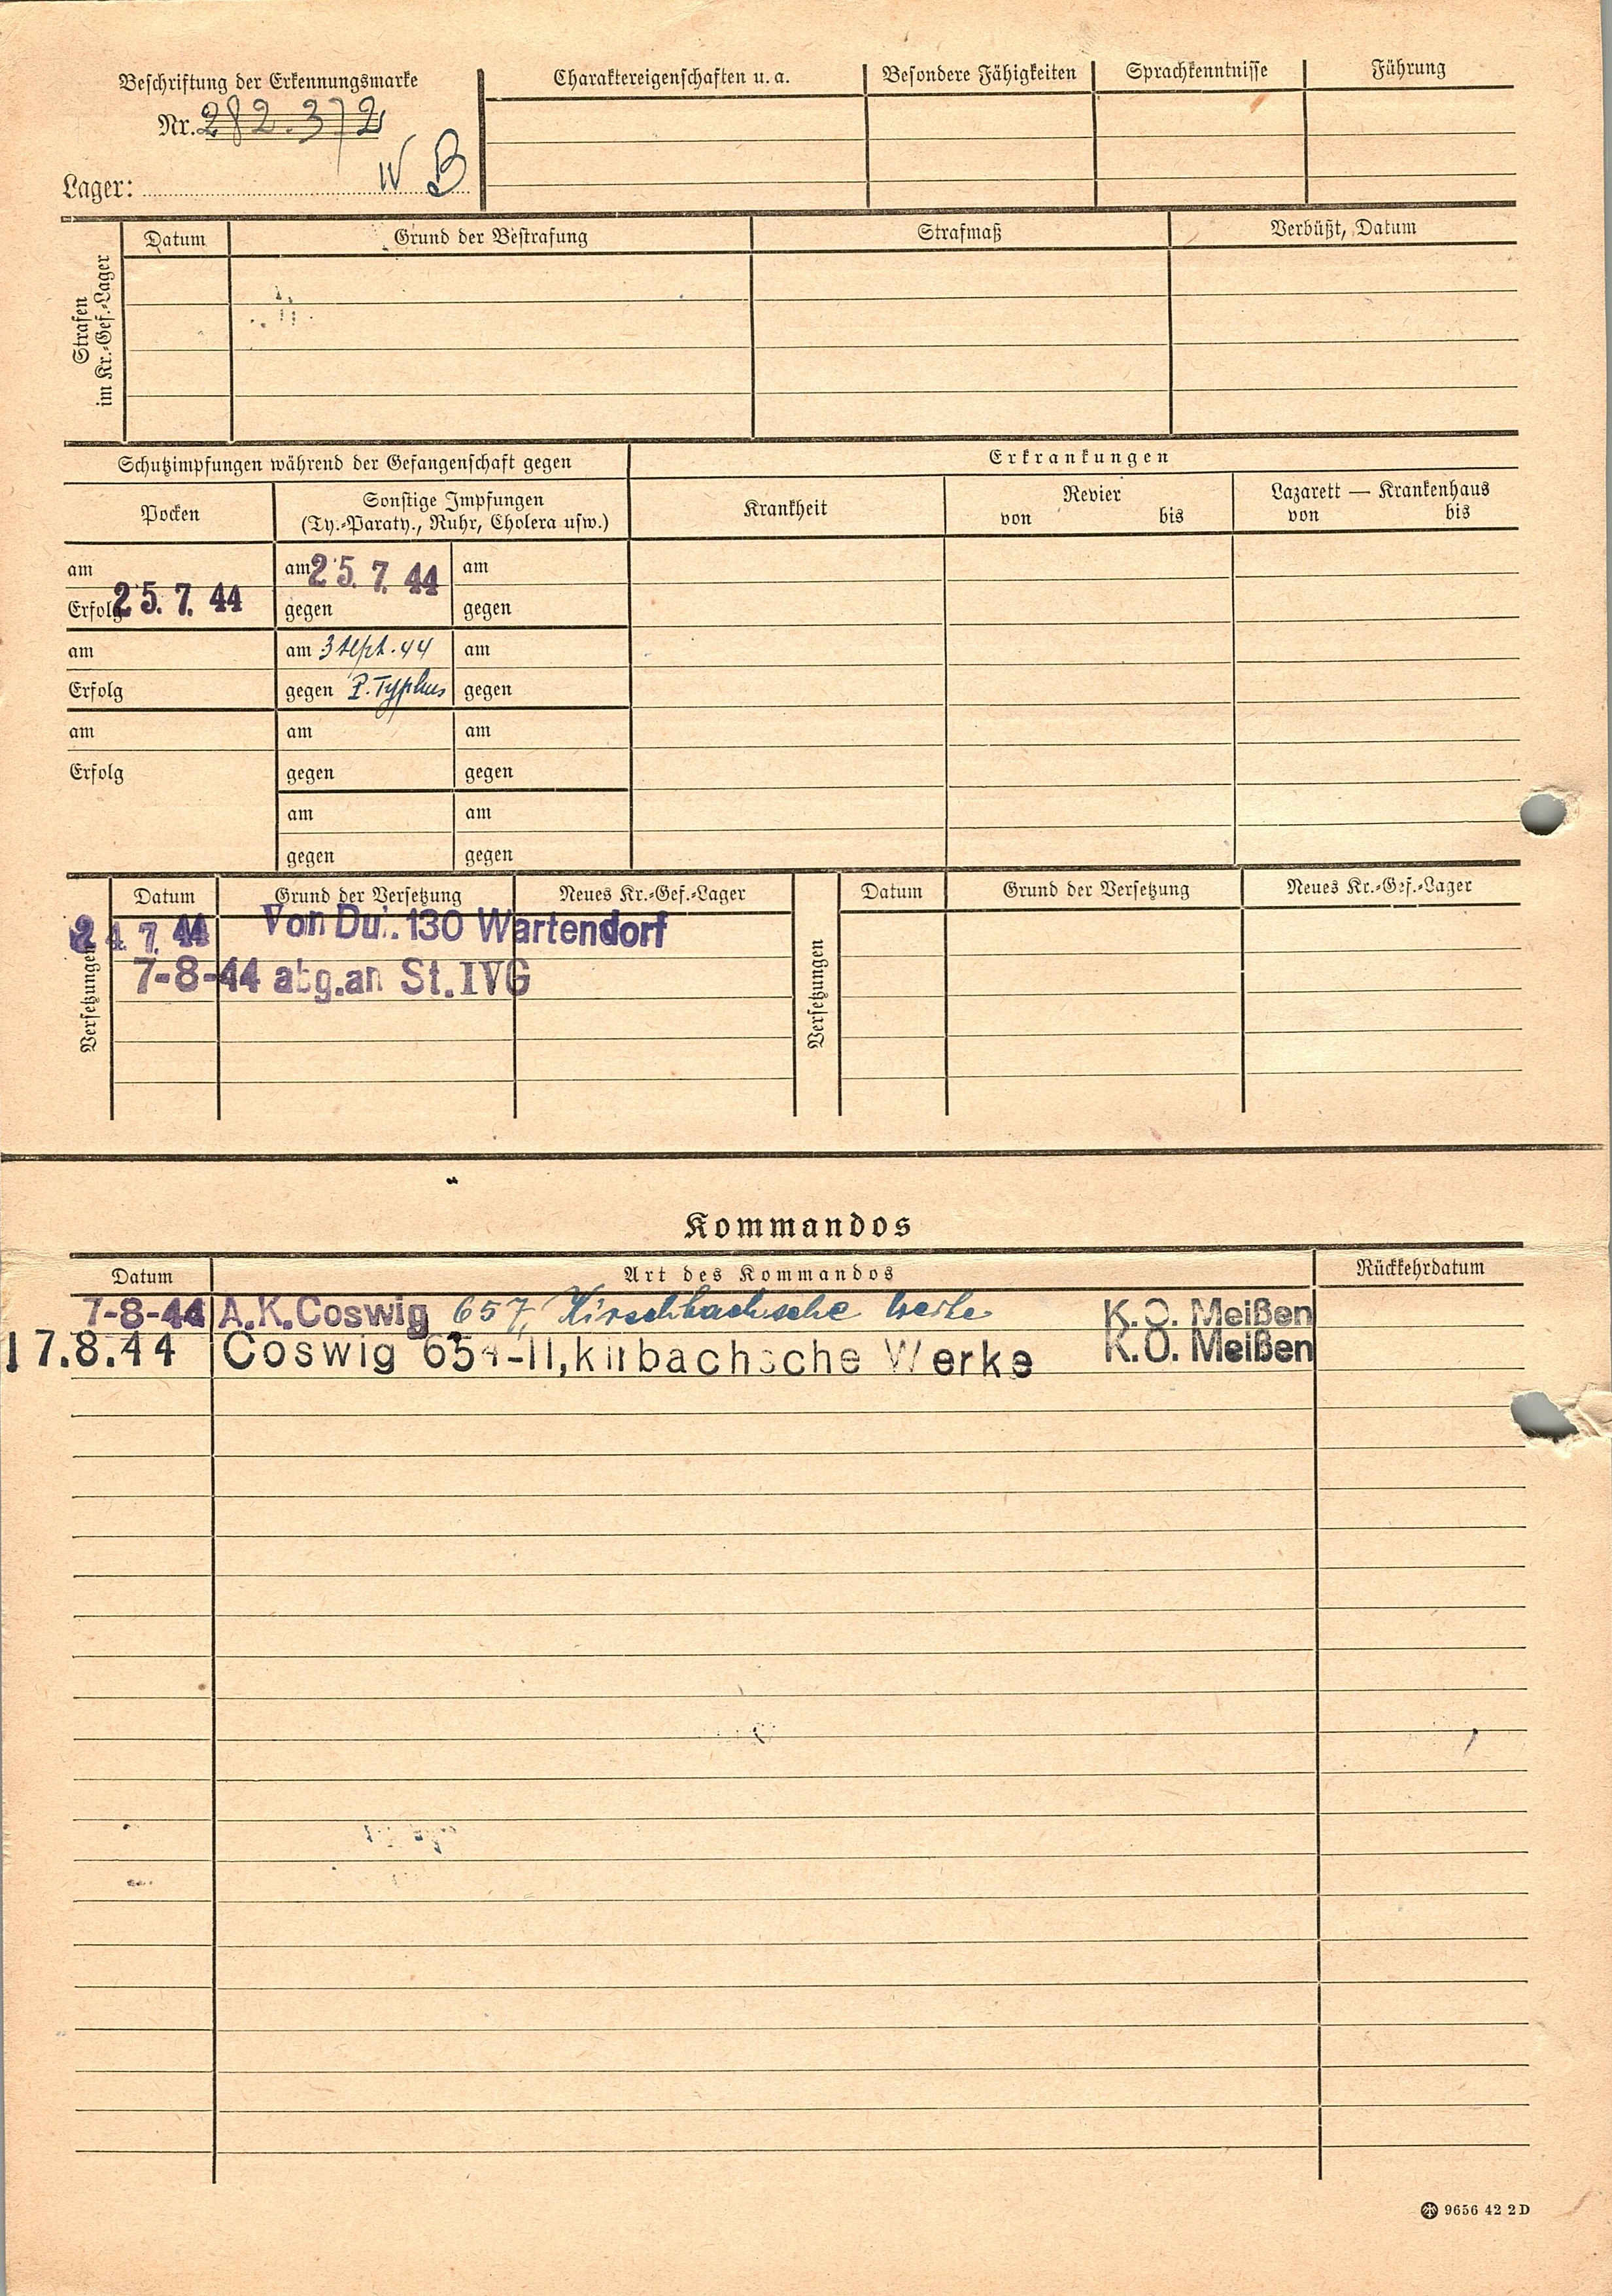 Beschriftung der Erkennungsmarke
Nr. 282.372
Lager: IV B
Charaktereigenschaften u. a.
Besondere Fähigkeiten
Sprachkenntnisse
Führung
Strafen
im Kr.-Gef.-Lager
Datum
Grund der Bestrafung
Strafmaß
Verbüßt, Datum
Schutzimpfungen während der Gefangenschaft gegen
Erkrankungen
Pocken
Sonstige Impfungen
(Ty.-Paraty., Ruhr, Cholera usw.)
Krankheit
Revier
von bis
Lazarett — Krankenhaus
von bis
am
am 25.7.44
am
Erfolg 25.7.44
gegen
gegen
am
am 3 Sept. 44
am
Erfolg
gegen P. Typhus
gegen
am
am
am
Erfolg
gegen
gegen
am
am
gegen
gegen
Versetzungen
Datum
Grund der Versetzung
Neues Kr.-Gef.-Lager
24.7.44 Von Du. 130 Wartendorf
7-8-44 abg.an St. IVG
Versetzungen
Datum
Grund der Versetzung
Neues Kr.-Gef.-Lager
Kommandos
Datum
Art des Kommandos
Rückkehrdatum
7-8-44 A.K.Coswig 657, Kirschbachsche Werke K.O. Meißen
17.8.44 Coswig -II, kirbachsche Werke K.O. Meißen
9656 42 2 D